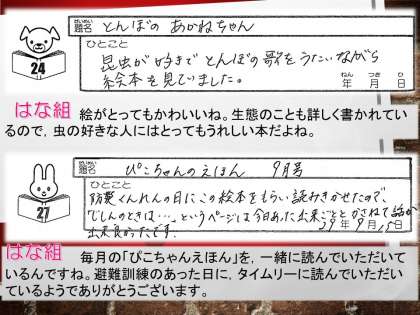 だいめい
題名 とんぼの あかねちゃん
ひとこと
昆虫が 好きで とんぼの歌をうたいながら
絵本を見ていました。
ねん つき ひ
年 月 日
24
はな組 絵がとってもかわいいね。生態のことも詳しく書かれてい
るので，虫の好きな人にはとってもうれしい本だよね。
だいめい
題名 ぴこちゃんのえほん 9月号
ひとこと
防災くんれんの日に、この絵本をもらい読みきかせたので、
「じしんのときは…」というページは今日あった出来ごとと かさねて話が
出来良かったです。
29年 9月 15日
27
はな組 毎月の「ぴこちゃんえほん」を，一緒に読んでいただいて
いるんですね。避難訓練のあった日に，タイムリーに読んでいただい
ているようでありがとうございます。